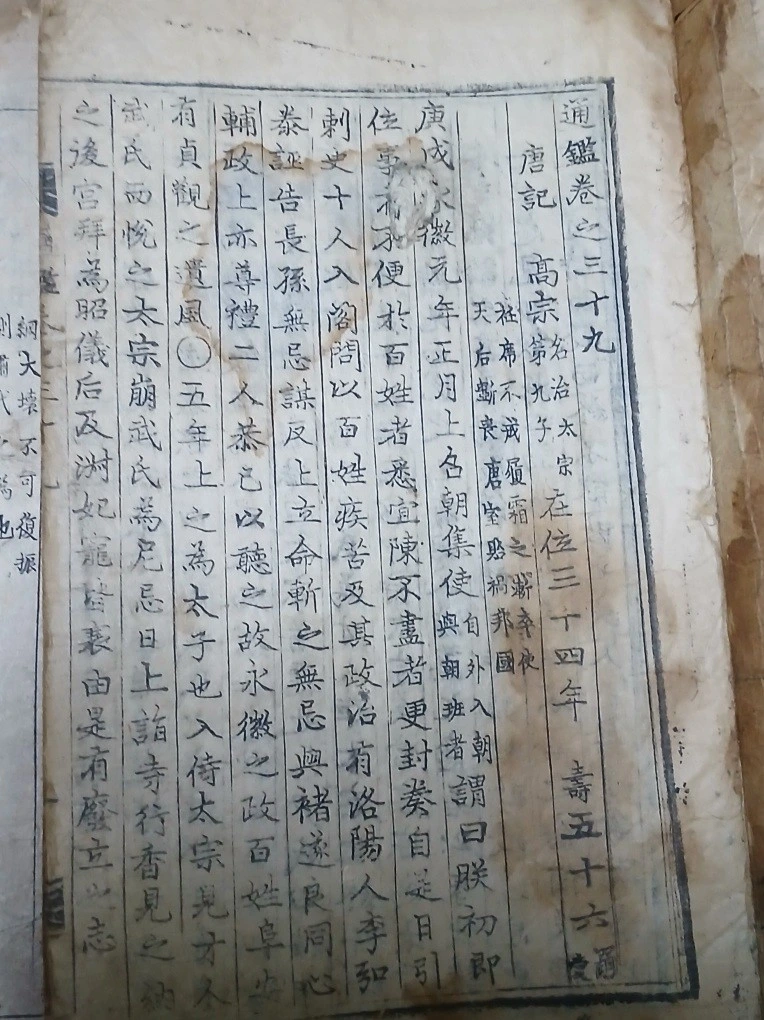 通鑑卷之三十九
唐記 高宗 名治太宗第九子 在位三十四年 壽五十六
衽席不戒履霜之漸卒使
天后斲喪唐室貽禍邦國
庚戌永徽元年正月上召朝集使 自外入朝與朝班者 謂曰朕初即
位事有不便於百姓者悉宜陳不盡者更封奏自是日引
刺史十人入閤問以百姓疾苦及其政治有洛陽人李弘
泰誣告長孫無忌謀反上立命斬之無忌與褚遂良同心
輔政上亦尊禮二人恭己以聽之故永徽之政百姓阜安
有貞觀之遺風〇五年上之為太子也入侍太宗見才人
武氏而悅之太宗崩武氏為尼忌日上詣寺行香見之納
之後宮拜為昭儀后及淑妃寵皆衰由是有廢立之志
綱大壞不可復振